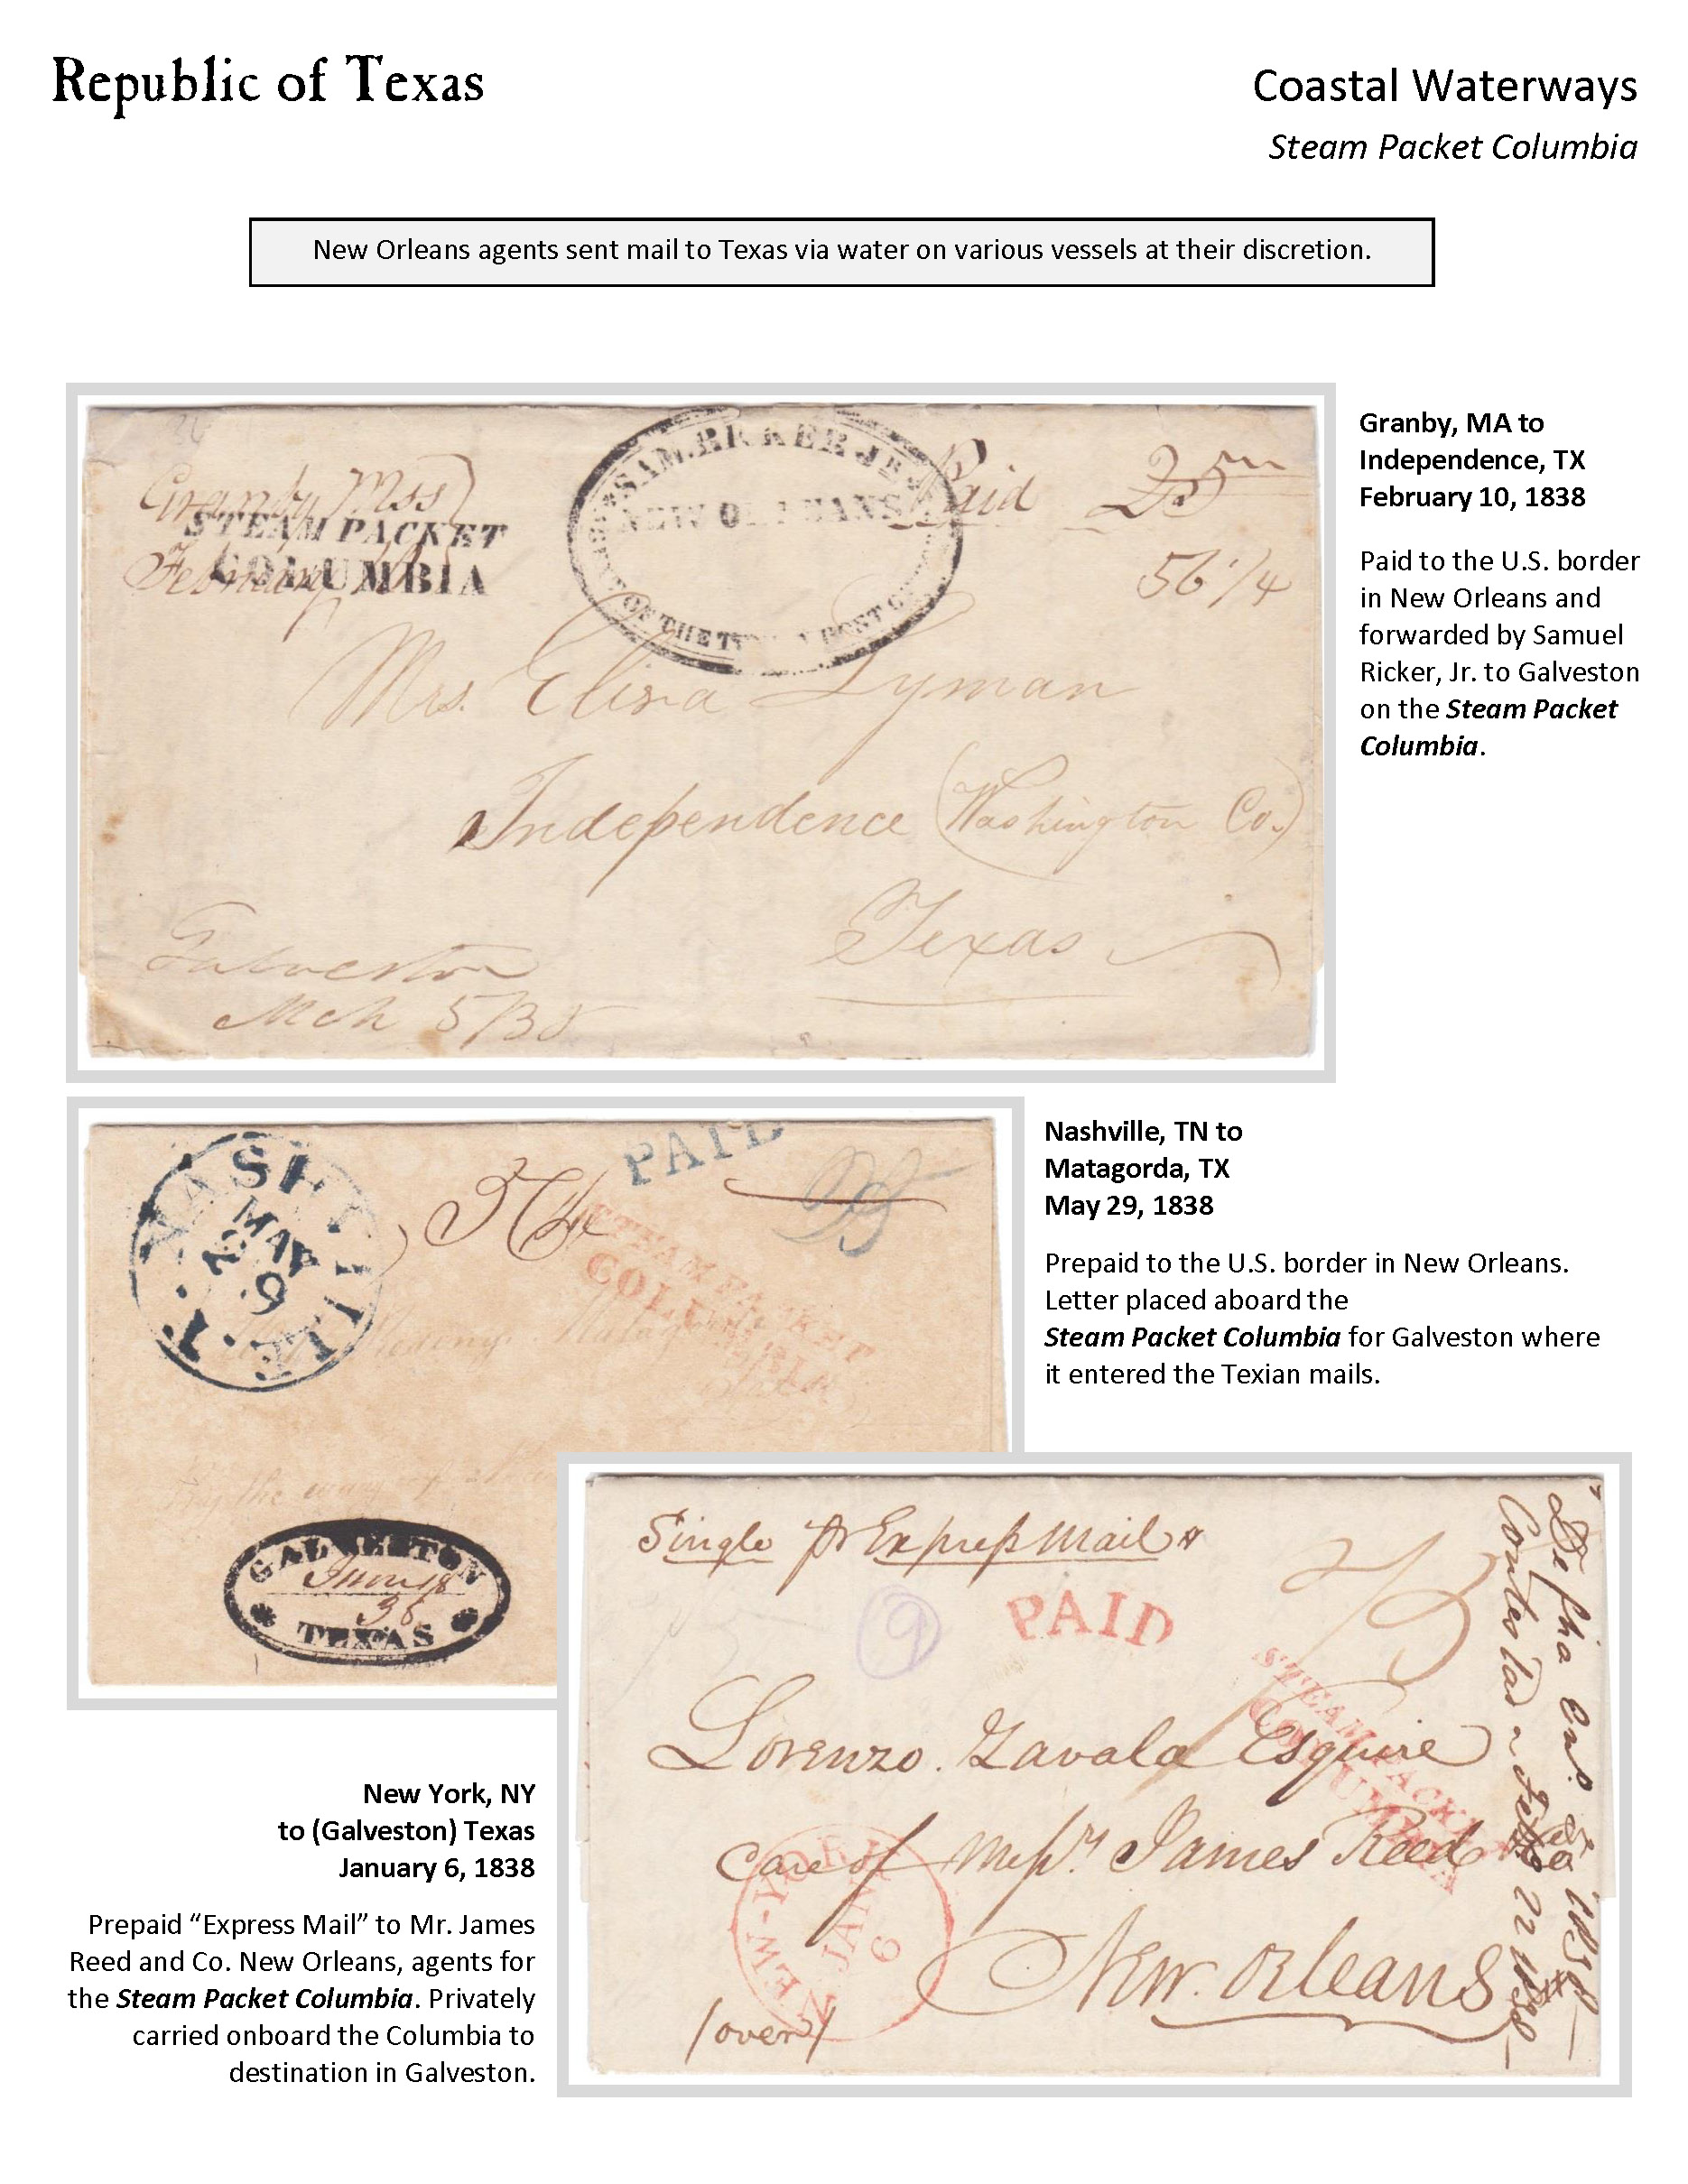 Republic of Texas
Coastal Waterways
Steam Packet Columbia
New Orleans agents sent mail to Texas via water on various vessels at their discretion.
Granby, MA to
Independence, TX
February 10, 1838
Paid to the U.S. border
in New Orleans and
forwarded by Samuel
Ricker, Jr. to Galveston
on the Steam Packet
Columbia.
Granby Mss
STEAM PACKET
COLUMBIA
SAM. RICKER JR
NEW ORLEANS
OF THE
Paid 25
56 1/4
Mrs. Eliza Lyman
Independence (Washington Co.)
Texas
Galveston
Mch 5/38
Nashville, TN to
Matagorda, TX
May 29, 1838
Prepaid to the U.S. border in New Orleans.
Letter placed aboard the
Steam Packet Columbia for Galveston where
it entered the Texian mails.
MAY
29
PAID
25
STEAM PACKET
COLUMBIA
By the way of
GALVESTON
June 18
38
TEXAS
New York, NY
to (Galveston) Texas
January 6, 1838
Prepaid “Express Mail” to Mr. James
Reed and Co. New Orleans, agents for
the Steam Packet Columbia. Privately
carried onboard the Columbia to
destination in Galveston.
Single pr Express Mail
9
PAID
STEAM PACKET
COLUMBIA
Lorenzo Zavala Esquire
care of Messrs. James Reed & Co
New Orleans
NEW-YORK
JAN
6
(over)